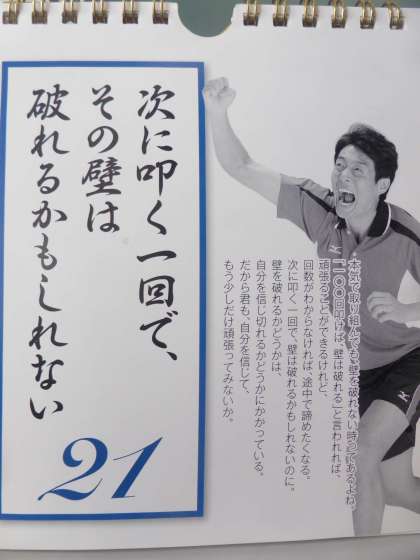 次に叩く一回で、
その壁は
破れるかもしれない
21
本気で取り組んでも、壁を破れない時ってあるよね。
「一〇〇回叩けば、壁は破れる」と言われれば、
頑張ることができるけれど、
回数がわからなければ、途中で諦めたくなる。
次に叩く一回で、壁は破れるかもしれないのに。
壁を破れるかどうかは、
自分を信じ切れるかどうかにかかっている。
だから君も、自分を信じて、
もう少しだけ頑張ってみないか。